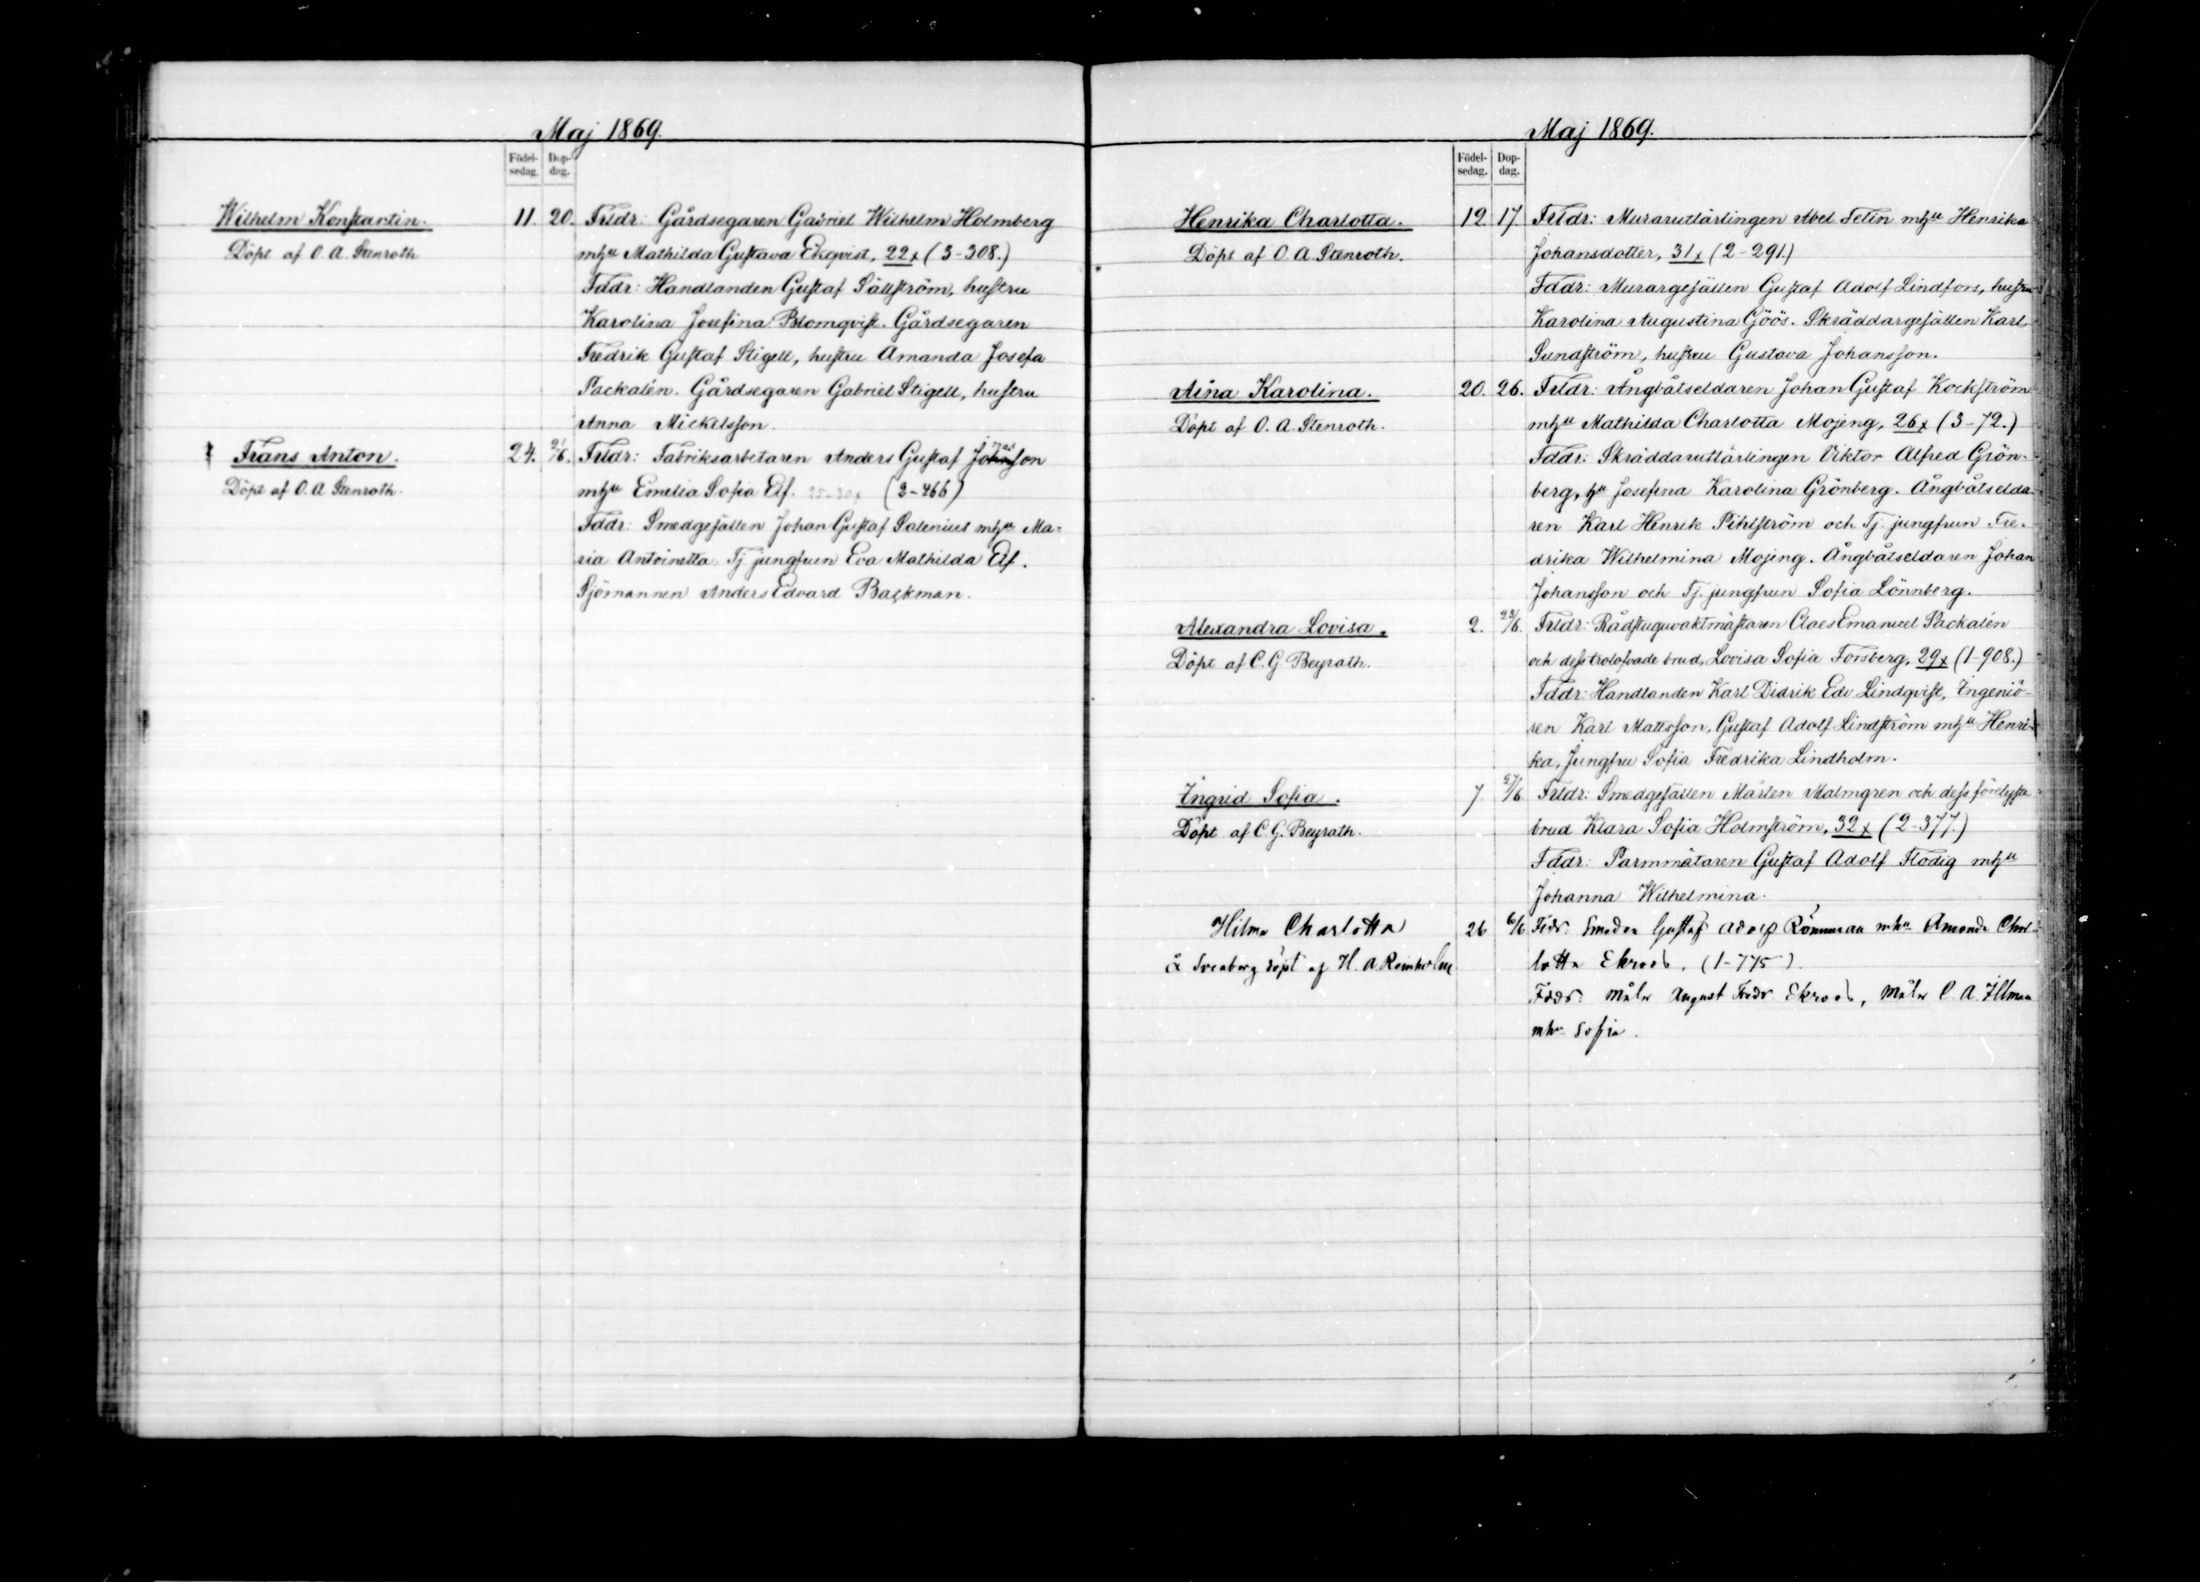 Maj 1869.
Födel-
sedag.
Dop-
dag.
Wilhelm Konstantin.
Döpt af O. A. Stenroth
11. 20. Frldr: Gårdsegaren Gabriel Wilhelm Holmberg
mhu Mathilda Gustava Ekqvist, 22x (3-308.)
Fddr: Handlanden Gustaf Sällström, hustru
Karolina Josefina Blomqvist. Gårdsegaren
Fredrik Gustaf Stigell, hustru Amanda Josefa
Packalén. Gårdsegaren Gabriel Stigell, hustru
Anna Mickelsson.
Frans Anton.
Döpt af O. A. Stenroth.
24. Frldr: Fabriksarbetaren Anders Gustaf
mhu Emelia Sofia Elf. 25-30x (2-466)
Fddr: Smedgesällen Johan Gustaf Salenius mhu Ma-
ria Antoinetta. Tj. jungfrun Eva Mathilda Elf.
Sjömannen Anders Edvard Backman.
Maj 1869.
Födel-
sedag.
Dop-
dag.
Henrika Charlotta.
Döpt af O. A. Stenroth.
12. 17. Frldr: Murarutlärlingen Abel Felin mhu Henrika
Johansdotter, 31x (2-291.)
Fddr: Murargesällen Gustaf Adolf Lindfors, hustru
Karolina Augustina Göös. Skräddargesällen Karl
Sundström, hustru Gustava Johansson.
Aina Karolina.
Döpt af O. A. Stenroth.
20. 26. Frldr: Ångbåtseldaren Johan Gustaf Kockström
mhu Mathilda Charlotta Mojeng, 26x (3-72.)
Fddr: Skräddarutlärlingen Viktor Alfred Grön-
berg, hu Josefina Karolina Grönberg. Ångbåtselda-
ren Karl Henrik Pihlström och Tj. jungfrun Fre-
drika Wilhelmina Mojing. Ångbåtseldaren Johan
Johansson och Tj. jungfrun Sofia Lönnberg.
Alexandra Lovisa.
Döpt af C. G. Beyrath.
2. 23/6. Frldr: Rådstuguvaktmästaren Claes Emanuel Packalén
och dess trolofvade brud, Lovisa Sofia Forsberg, 29x (1-908.)
Fddr: Handlanden Karl Didrik Edv Lindqvist, Ingeniö-
ren Karl Mattsson, Gustaf Adolf Lindström mhu Henri-
ka, Jungfru Sofia Fredrika Lindholm.
Ingrid Sofia.
Döpt af C. G. Beyrath.
7. 27/6 Frldr: Smedgesällen Mårten Malmgren och dess förelysta
brud Klara Sofia Holmström, 32x (2-377.)
Fddr: Parmmätaren Gustaf Adolf Flodig mhu
Johanna Wilhelmina.
Hilma Charlotta
å Sveaborg döpt af H. A. Reinholm
26 6/6 Gustaf Adolf Rönnman mhu Amanda Char-
lotta Ekroos. (1-775).
Fddr: Målar August Fredr Ekroos, Målar C. A. Illman
mhu Sofia.